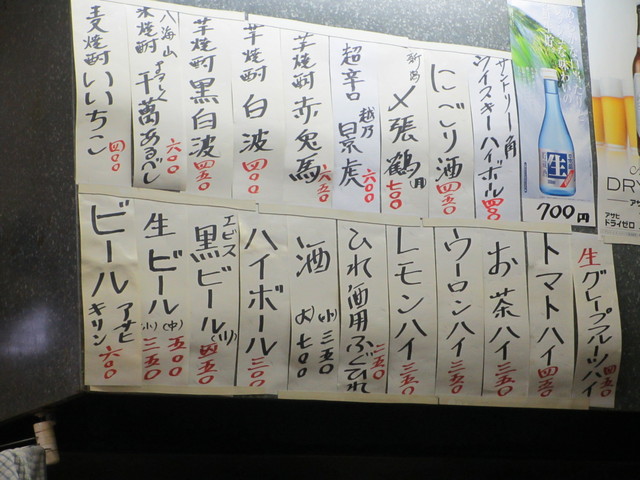 サントリー角
ウイスキーハイボール 四〇〇
にごり酒 四五〇
〆張鶴(月) 七〇〇
超辛口
越乃景虎 六〇〇
芋焼酎 赤兎馬 六五〇
芋焼酎 白波 四〇〇
芋焼酎 黒白波 四五〇
八海山
米焼酎
よろしく千萬あるべし 六〇〇
麦焼酎 いいちこ 四〇〇
生
700円
DRY
アサヒ
ドライゼロ
生グレープフルーツハイ 四五〇
トマトハイ 四五〇
お茶ハイ 三五〇
ウーロンハイ 三五〇
レモンハイ 三五〇
ひれ酒用ふぐひれ 二五〇
酒 (小) 三五〇
(大) 七〇〇
ハイボール 三〇〇
エビス
黒ビール(小) 四五〇
生ビール (中) 五〇〇
(小) 三五〇
ビール アサヒ
キリン 六〇〇